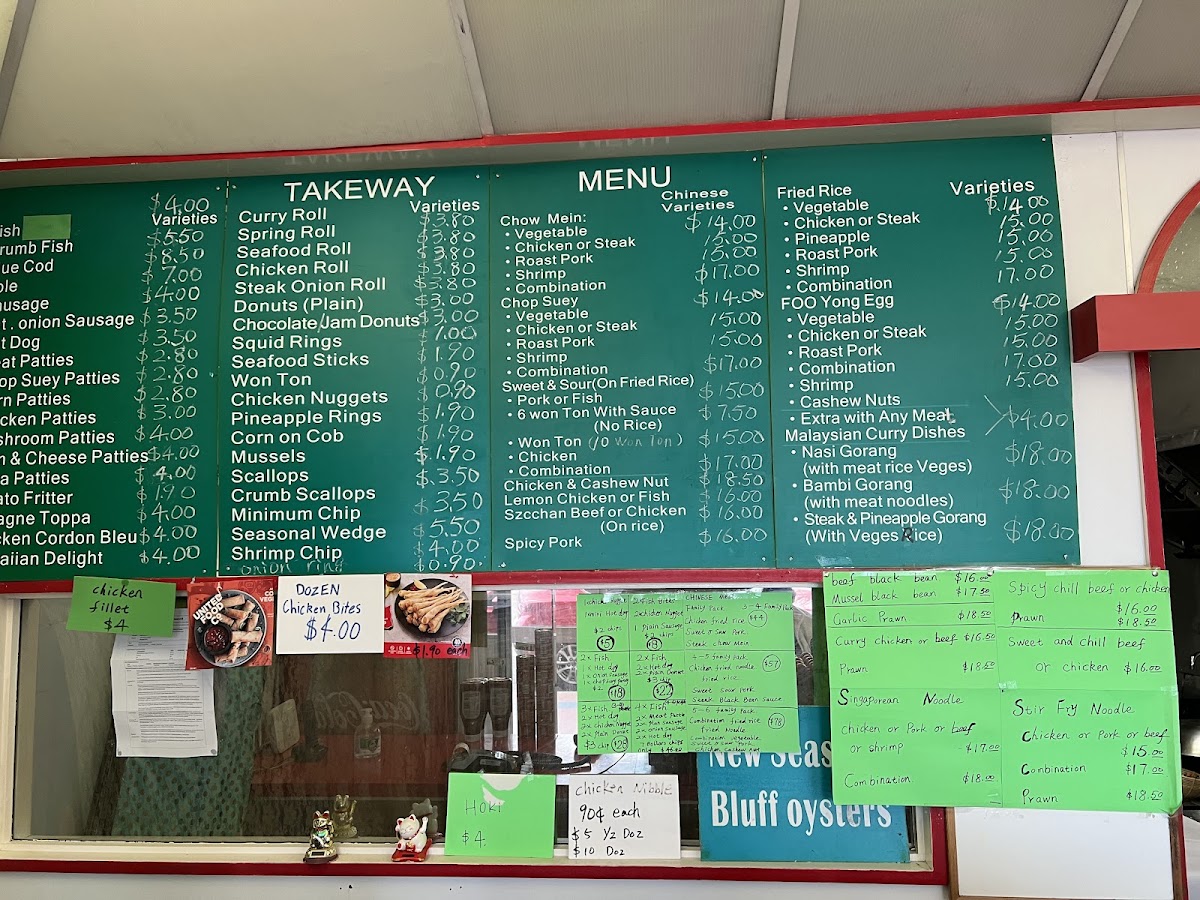 $4.00
Varieties
ish
rumb Fish $5.50
ue Cod $8.50
ble $7.00
ausage $4.00
t . onion Sausage $3.50
t Dog $3.50
eat Patties $2.80
op Suey Patties $2.80
rn Patties $2.80
cken Patties $3.00
shroom Patties $4.00
n & Cheese Patties $4.00
a Patties $4.00
ato Fritter $1.90
agne Toppa $4.00
cken Cordon Bleu $4.00
aiian Delight $4.00
TAKEWAY
Varieties
Curry Roll $3.80
Spring Roll $3.80
Seafood Roll $3.80
Chicken Roll $3.80
Steak Onion Roll $3.80
Donuts (Plain) $3.00
Chocolate/Jam Donuts $3.00
Squid Rings $1.00
Seafood Sticks $1.90
Won Ton $0.90
Chicken Nuggets $0.90
Pineapple Rings $1.90
Corn on Cob $1.90
Mussels $1.90
Scallops $3.50
Crumb Scallops $3.50
Minimum Chip
Seasonal Wedge $5.50
Shrimp Chip $4.00
onion ring $0.90
MENU
Chinese
Varieties
Chow Mein:
• Vegetable $14.00
• Chicken or Steak 15.00
• Roast Pork 15.00
• Shrimp $17.00
• Combination
Chop Suey
• Vegetable $14.00
• Chicken or Steak 15.00
• Roast Pork 15.00
• Shrimp
• Combination $17.00
Sweet & Sour(On Fried Rice)
• Pork or Fish $15.00
• 6 won Ton With Sauce $7.50
(No Rice)
• Won Ton (10 won Ton) $15.00
• Chicken
• Combination $17.00
Chicken & Cashew Nut $18.50
Lemon Chicken or Fish $16.00
Szcchan Beef or Chicken $16.00
(On rice)
Spicy Pork $16.00
Varieties
Fried Rice
• Vegetable $14.00
• Chicken or Steak 15.00
• Pineapple 15.00
• Roast Pork 15.00
• Shrimp
• Combination 17.00
FOO Yong Egg
• Vegetable $14.00
• Chicken or Steak 15.00
• Roast Pork 15.00
• Combination 17.00
• Shrimp 15.00
• Cashew Nuts
• Extra with Any Meat $4.00
Malaysian Curry Dishes
• Nasi Gorang $18.00
(with meat rice Veges)
• Bambi Gorang $18.00
(with meat noodles)
• Steak & Pineapple Gorang
(With Veges Rice) $18.00
chicken
fillet
$4
UNITED
FOOD
CO
DOZEN
Chicken Bites
$4.00
$1.90 each
2 x Fish
1 x Hot dog
2 x Fish
2 x Hot dog
3 x Fish
2 x Hot dog
4 x Fish
CHINESE MEAL
Family Pack
Chicken fried rice
Sweet & Sour Pork
Steak chow Mein
4-5 family pack
Chicken fried noodle
fried rice
Sweet sour pork
Steak Black Bean Sauce
5-6 family pack
Combination fried rice
Fried Noodle
$57
$78
beef black bean $16.00
Mussel black bean $17.50
Garlic Prawn $18.50
Curry chicken or beef $16.50
Prawn $18.50
Singaporean Noodle
chicken or Pork or beef
or shrimp $17.00
Combination $18.00
Spicy chill beef or chicken
$16.00
Prawn $18.50
Sweet and chill beef
or chicken $16.00
Stir Fry Noodle
Chicken or Pork or beef
$15.00
Combination $17.00
Prawn $18.50
HOKI
$4.
chicken Nibble
90¢ each
$5 1/2 Doz
$10 Doz
New Seas
Bluff oysters